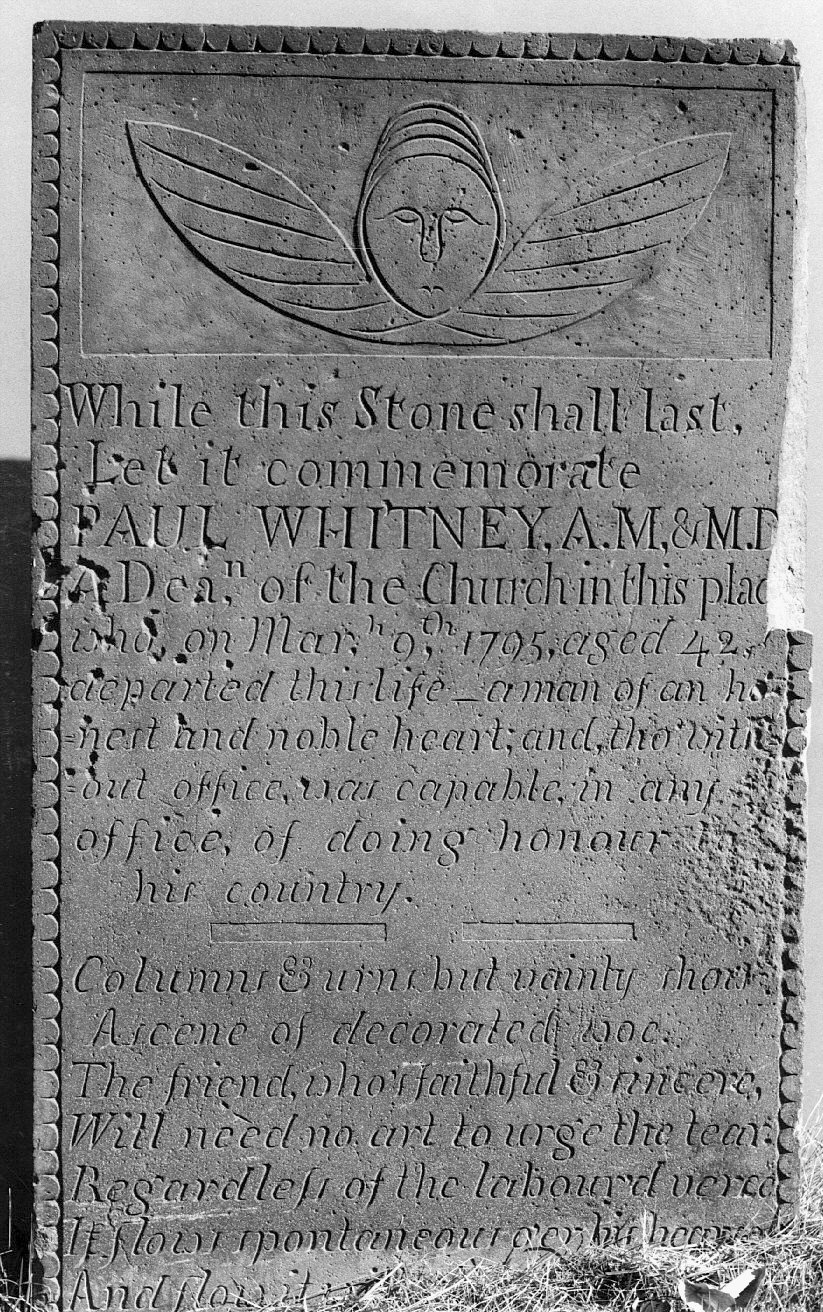 While this Stone shall last,
Let it commemorate
PAUL WHITNEY, A.M, & M.D
A Dea,n of the Church in this plac
who, on Mar,h 9,th 1795, aged 42,
departed this life_a man of an ho
=nest and noble heart; and, tho' with
=out office, was capable, in any
office, of doing honour to
his country.
Columns & urns but vainly show
A scene of decorated woe.
The friend, who's faithful & sincere,
Will need no art to urge the tear.
Regardless of the labour'd verse
It flows spontaneous o'er his hearse
And flows